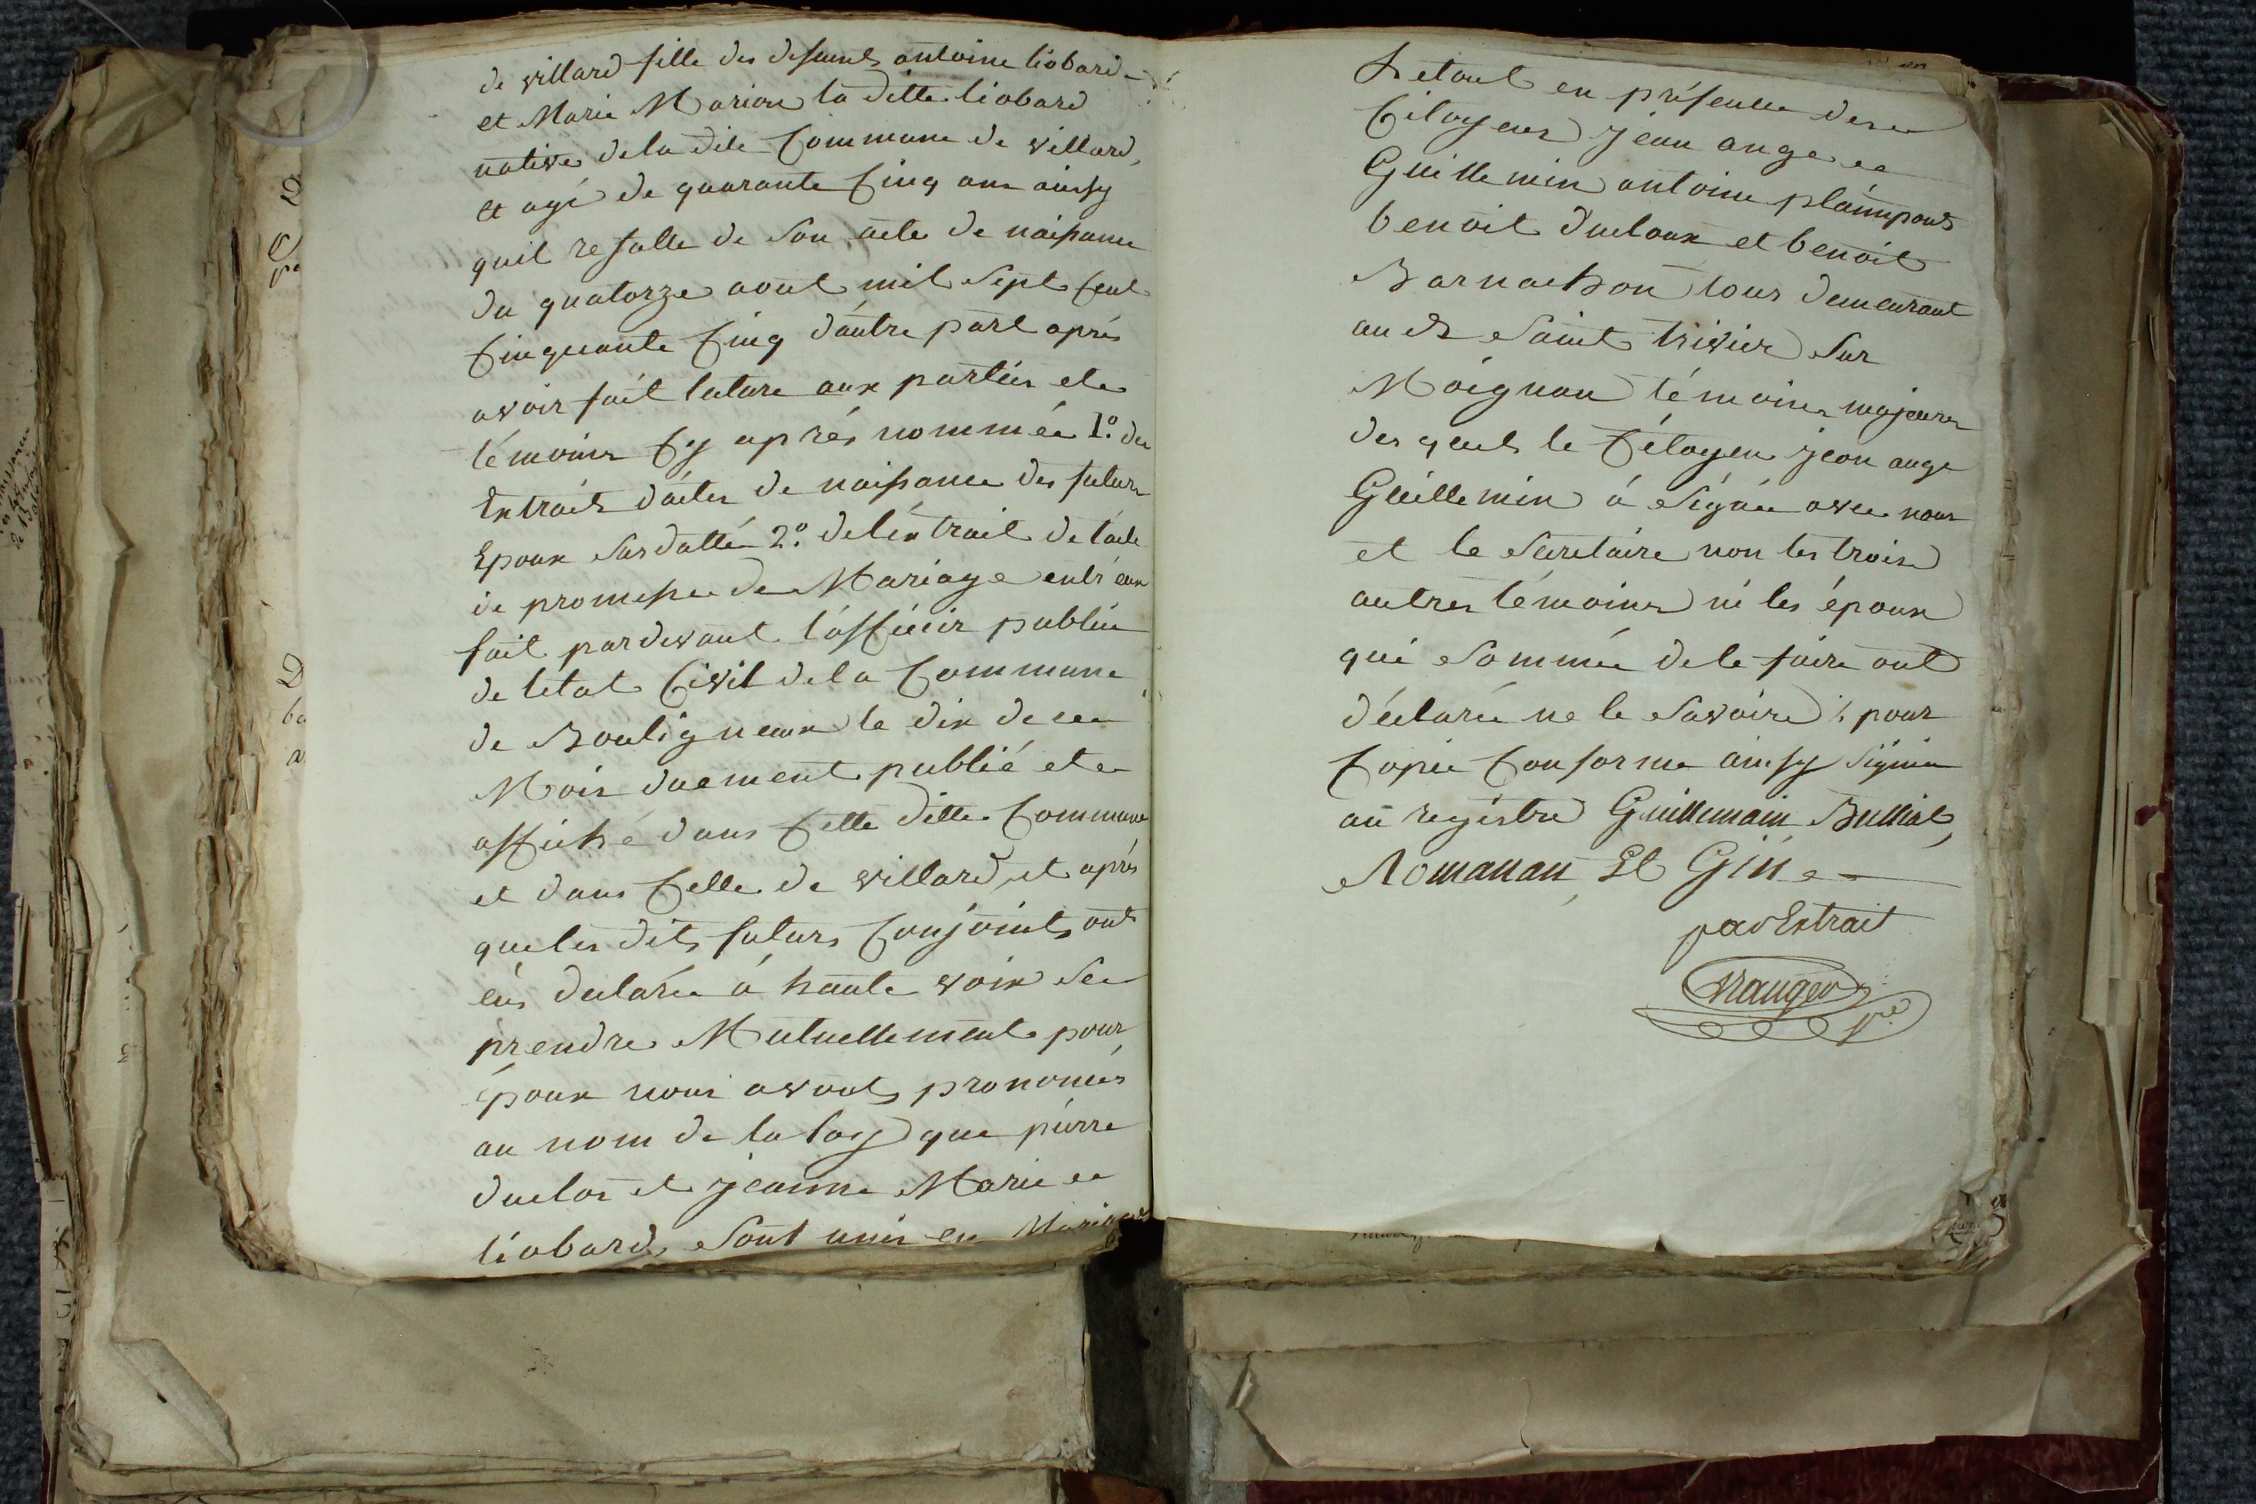 de villard fille des defunts antoine liobard
et Marie Marion la ditte liobard
native dela dite Commune de villard,
et agé de quarante Cinq ans ainsy
quil resulte de son acte de naissance
du quatorze aout mil sept Cent
Cinquante Cinq d'autre part aprés
avoir fait lecture aux parties et
témoins Cy aprés nommés 1.º des
Extraits d'actes de naissance des futurs
Epoux susdattés 2.º de l'éxtrait de l'acte
de promesse de Mariage entr'eux
fait pardevant l'officier public
de letat Civil dela Commune
de Bouligneux le dix de ce
Mois duement publié et
affiché dans Cette ditte Commune
et dans Celle de villard, et aprés
que les dits futurs Conjoints ont
eus declaré á haute voix se
prendre Mutuellement pour
époux nous avons prononcés
au nom de la loy que pierre
duclos et jeanne Marie
liobard, sont unis en Mariage
Le tout en présence des
Citoyens jean ange
Guillemin antoine
benoit ducloux et benoit
Barnachon tous demeurant
aud.t Saint trivier sur
Moignan témoins majeurs
des quels le Citoyen jean ange
Guillemin á signé avec nous
et le Secretaire non les trois
autres témoins ni les époux
qui sommés de le faire ont
déclaré ne le savoire pour
Copie Conforme ainsy signé
au registre Guillemain, Bulliat,
Romanan Et Giné
par Extrait